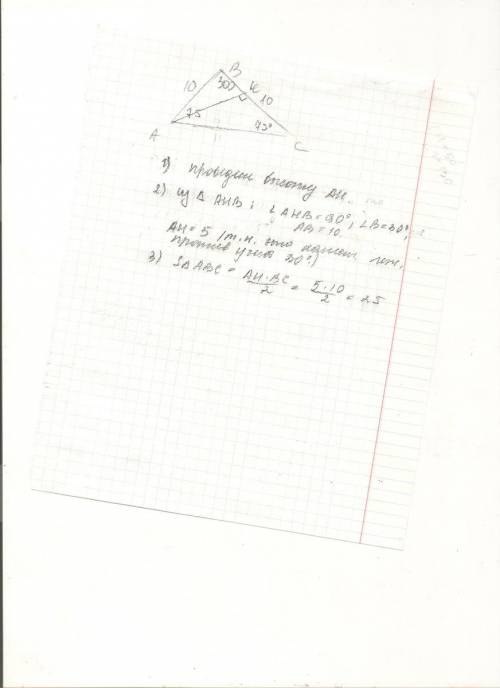 B
10
30
H
10
A
75
75°
C
1) проведем высоту AH.
2) из △ AHB: ∠AHB=90°, ∠B=30°,
AB=10
AH=5 (т.к. это катет леж.
против угла 30°)
3) S△ABC = AH·BC / 2 = 5·10 / 2 = 25